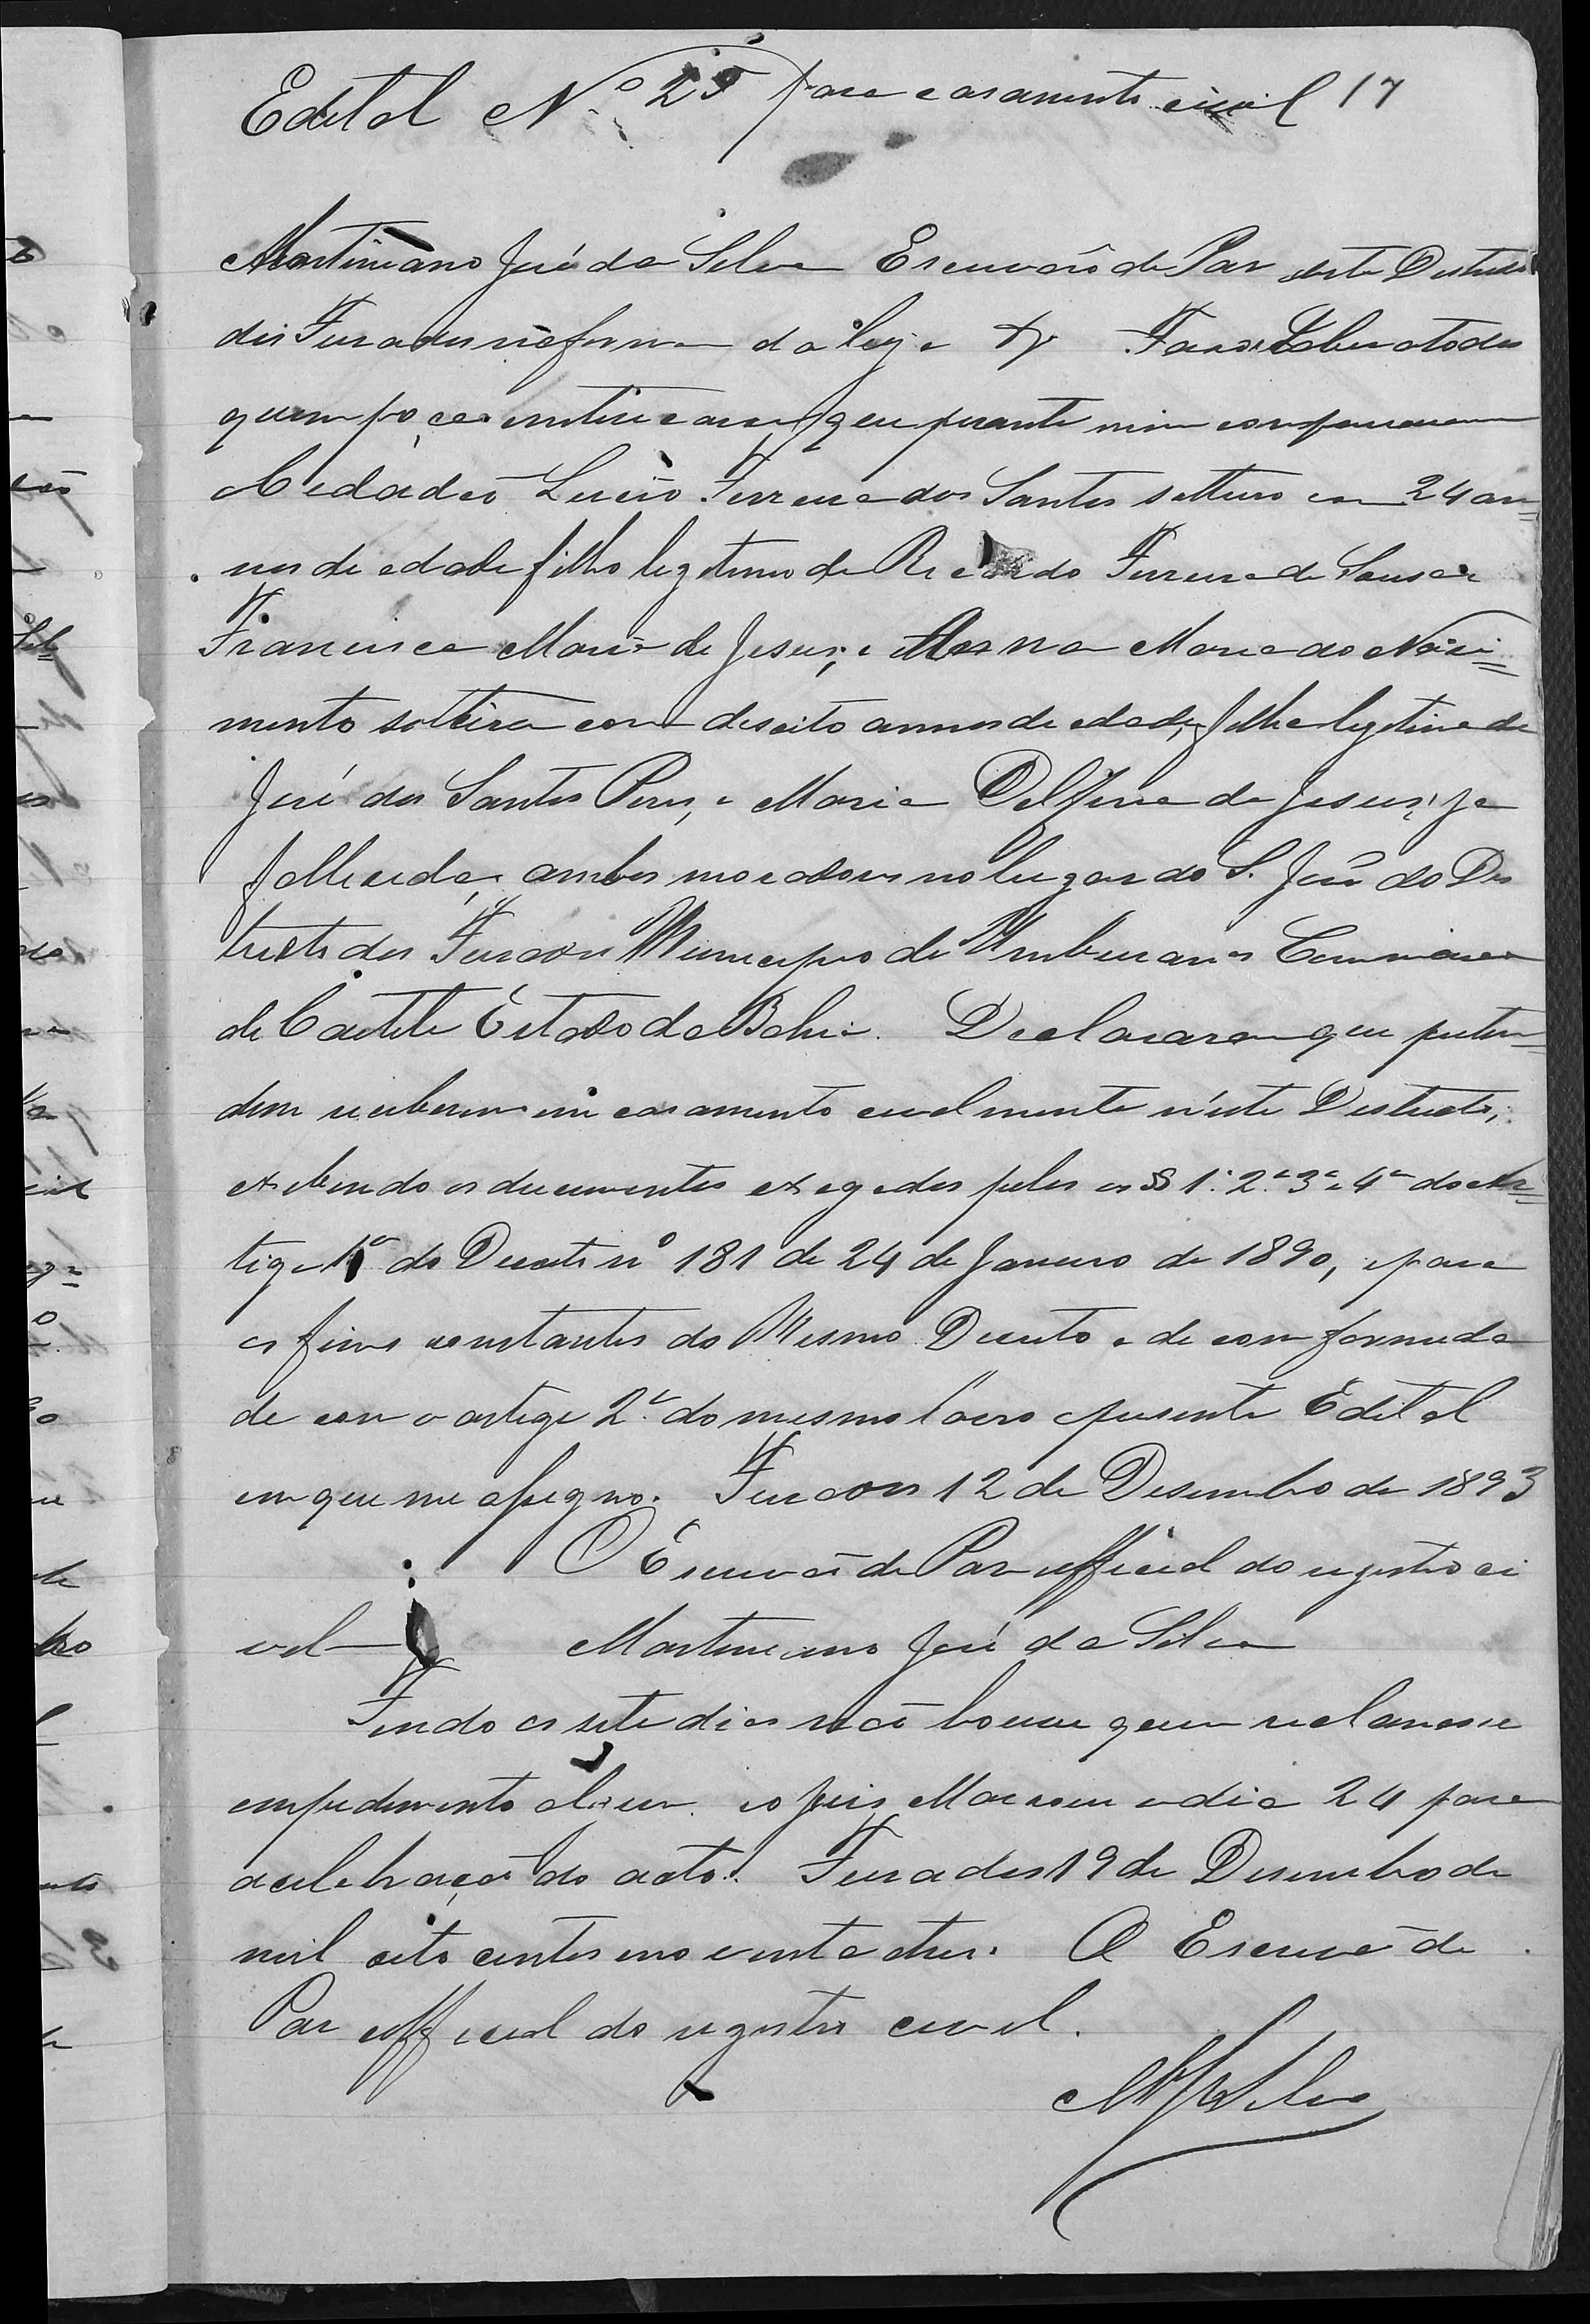 Edital Nº 25 para casamento civil 17
Martiniano José da Silva Escrivão de Paz deste Destricto
dos Furados na forma da lei e & Faso Saber a todos
quem poça enterecar que perante mim compareceram
Cidadão Lucio Ferreira dos Santos solteiro com 24 an=
nos de edade filho legitimo de Ricardo Ferreira de Sousa e
Francisca Maria de Jesus; e Anna Maria do Naci=
mento solteira com desoito annos de edade, filha legitima de
José dos Santos Peres, e Maria Delfina de Jesus, ja
fallecida, ambos moradores no lugar do S. José do Des
tricto dos Furados Municipio de Umburanas Commarca
de Caetité Estado da Bahia. Declararam que preten=
dem receberem em casamento civelmente n'este Destricto,
exebindo os documentos exegedos pelos os §§ 1º 2º 3º e 4º do Ar=
tigo 1º do Decreto nº 181 de 24 de Janeiro de 1890, e para
os fins constantes do Mesmo Decreto e de comformeda
de com o artigo 2º do mesmo lavro o presente Edital
em que me assigno. Furados 12 de Desembro de 1893
O Escrivão de Paz official do registro ci
vel Martiniano José da Silva
Findo os sete dias não houve quem reclamasse
empedimento algum o Juis Marcou o dia 24 para
a celebração do acto. Furados 19 de Desembro de
mil oito centos noventa e tres. O Escrivão de
Paz official do registro civel.
MJSilva